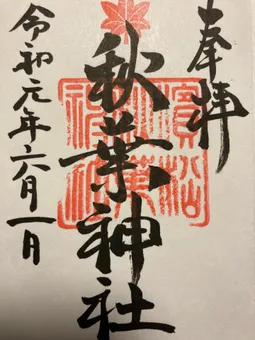 奉拝
秋葉神社
令和元年六月一日